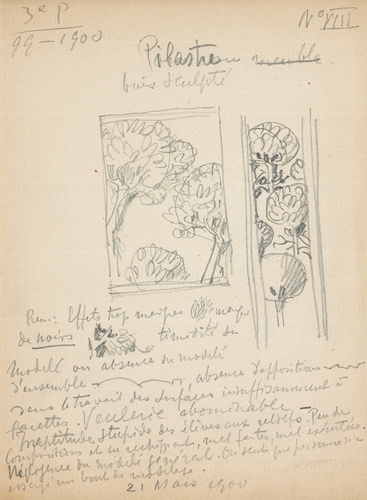 3e P
99-1900
No VIII
Pilastre ou meuble
bois sculpté
Rem: Effets trop maigres
de noirs timidité du
modelé ou absence du modelé
d'ensemble absence d'oppositions
dans le travail des surfaces insuffisamment à
facettes. Veulerie abominable
Ineptitude stupide des élèves aux reliefs. Peu de
Compositions et en rechignant, mal faites, mal exécutées.
Négligence du modèle général. On sent que personne n'a
un bout de modelage.
21 Mars 1900